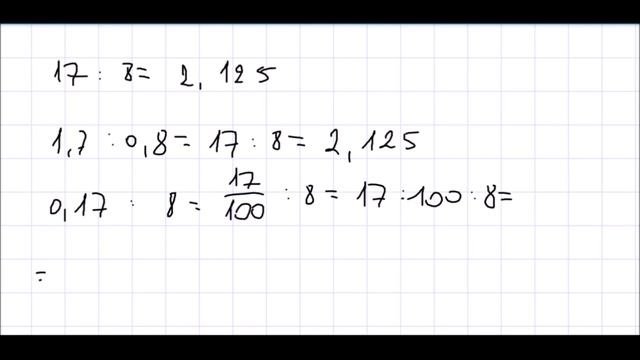 17 : 8 = 2,125
1,7 : 0,8 = 17 : 8 = 2,125
0,17 : 8 = 17/100 : 8 = 17 : 100 : 8 =
=